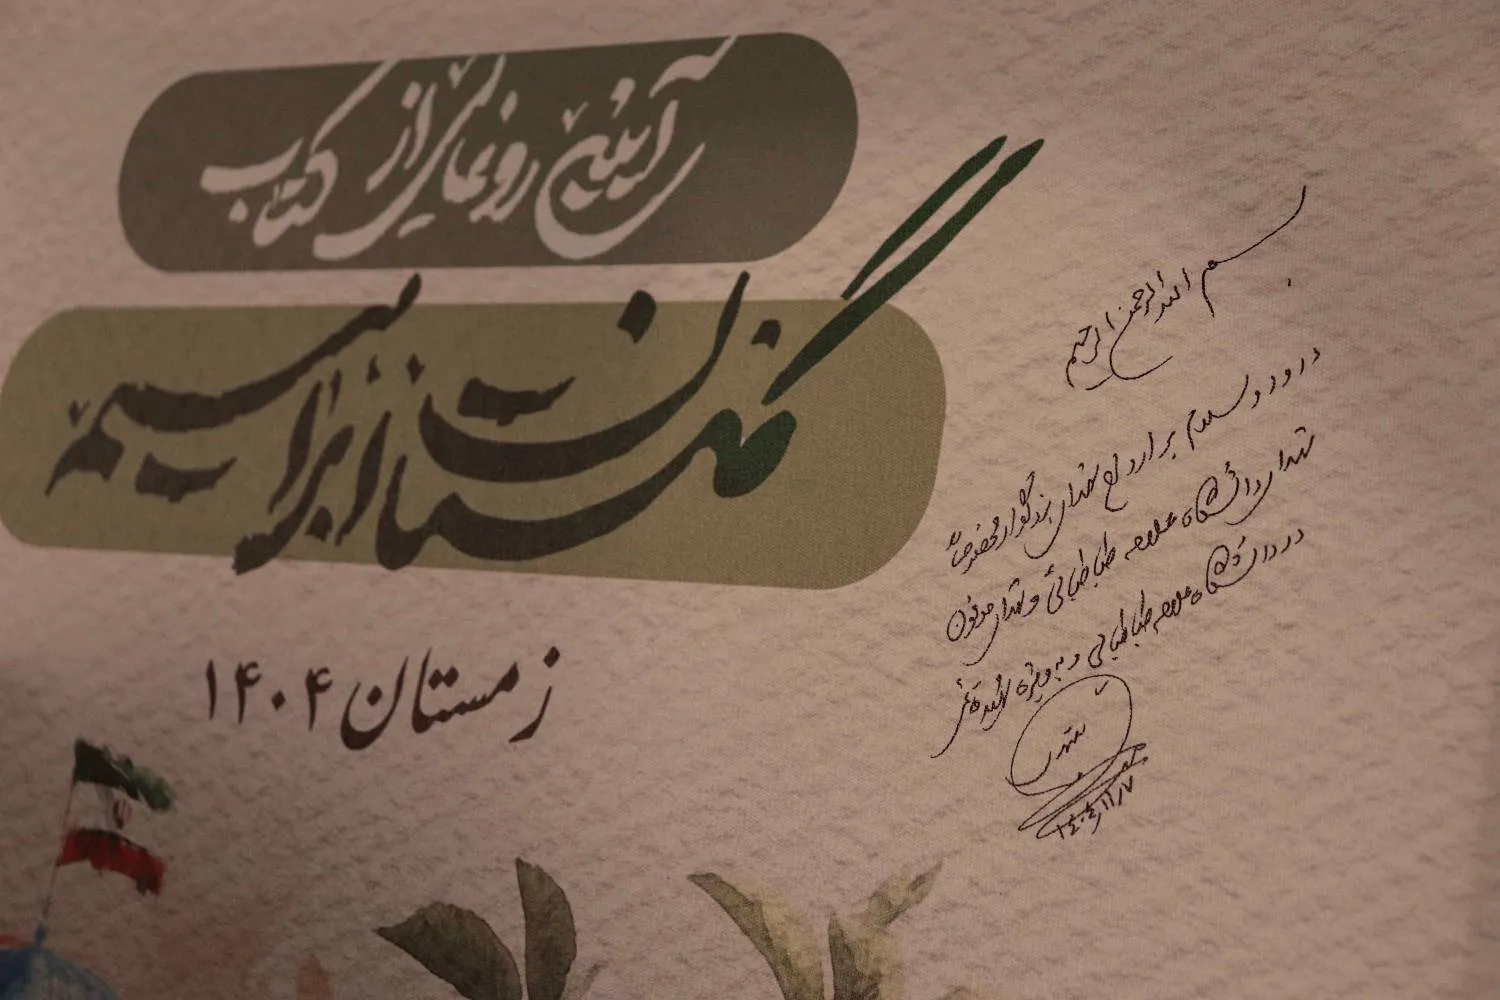 آیین رونمایی از کتاب
نخلستان ابراهیم
زمستان ۱۴۰۴
بسم الله الرحمن الرحیم
درود و سلام بر ارواح شهدای بزرگوار
شهدای دانشگاه علامه طباطبائی و شهدای مدفون
در دانشگاه علامه طباطبائی و به ویژه شهید
۱۴۰۴/۱۱/۷